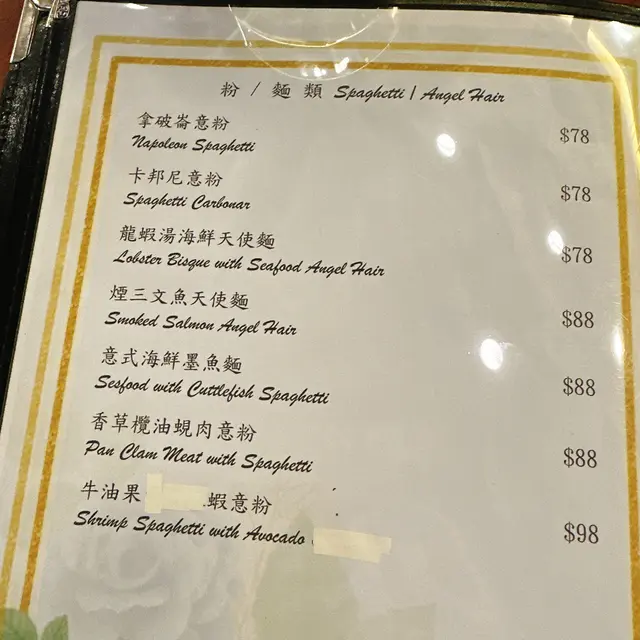 粉 / 麵 類 Spaghetti / Angel Hair
拿破崙意粉
Napoleon Spaghetti
$78
卡邦尼意粉
Spaghetti Carbonar
$78
龍蝦湯海鮮天使麵
Lobster Bisque with Seafood Angel Hair
$78
煙三文魚天使麵
Smoked Salmon Angel Hair
$88
意式海鮮墨魚麵
Sesfood with Cuttlefish Spaghetti
$88
香草欖油蜆肉意粉
Pan Clam Meat with Spaghetti
$88
牛油果 蝦意粉
Shrimp Spaghetti with Avocado
$98